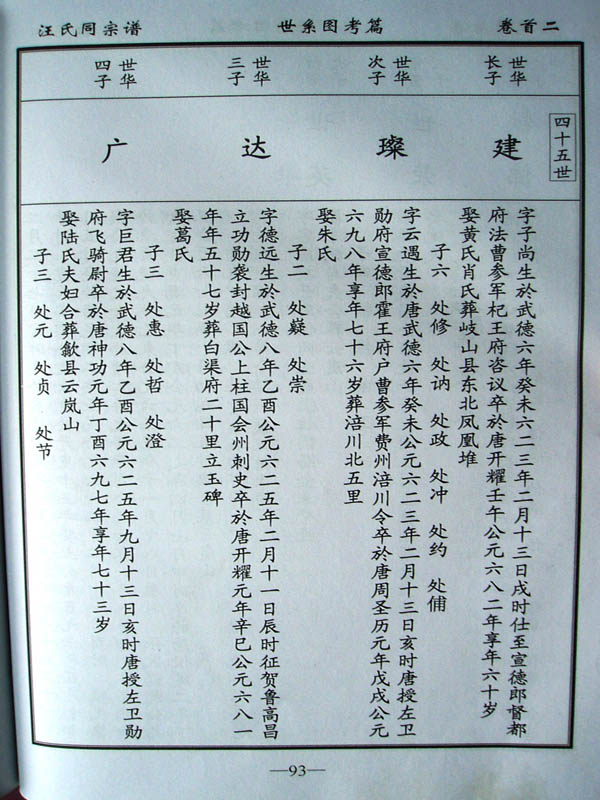 汪氏同宗谱
世系图考篇
卷首二
四十五世
世华长子
建
字子尚生於武德六年癸未六二三年二月十三日戌时仕至宣德郎督都
府法曹参军杞王府咨议卒於唐开耀壬午公元六八二年享年六十岁
娶黄氏肖氏葬岐山县东北凤凰堆
子六 处修 处讷 处政 处冲 处约 处俌
世华次子
璨
字云遇生於唐武德六年癸未公元六二三年二月十三日亥时唐授左卫
勋府宣德郎霍王府户曹参军费州涪川令卒於唐周圣历元年戊戌公元
六九八年享年七十六岁葬涪川北五里
娶朱氏
子二 处嶷 处崇
世华三子
达
字德远生於武德八年乙酉公元六二五年二月十一日辰时征贺鲁高昌
立功勋袭封越国公上柱国会州刺史卒於唐开耀元年辛巳公元六八一
年年五十七岁葬白渠府二十里立玉碑
娶葛氏
子三 处惠 处哲 处澄
世华四子
广
字巨君生於武德八年乙酉公元六二五年九月十三日亥时唐授左卫勋
府飞骑尉卒於唐神功元年丁酉六九七年享年七十三岁
娶陆氏夫妇合葬歙县云岚山
子三 处元 处贞 处节
—93—